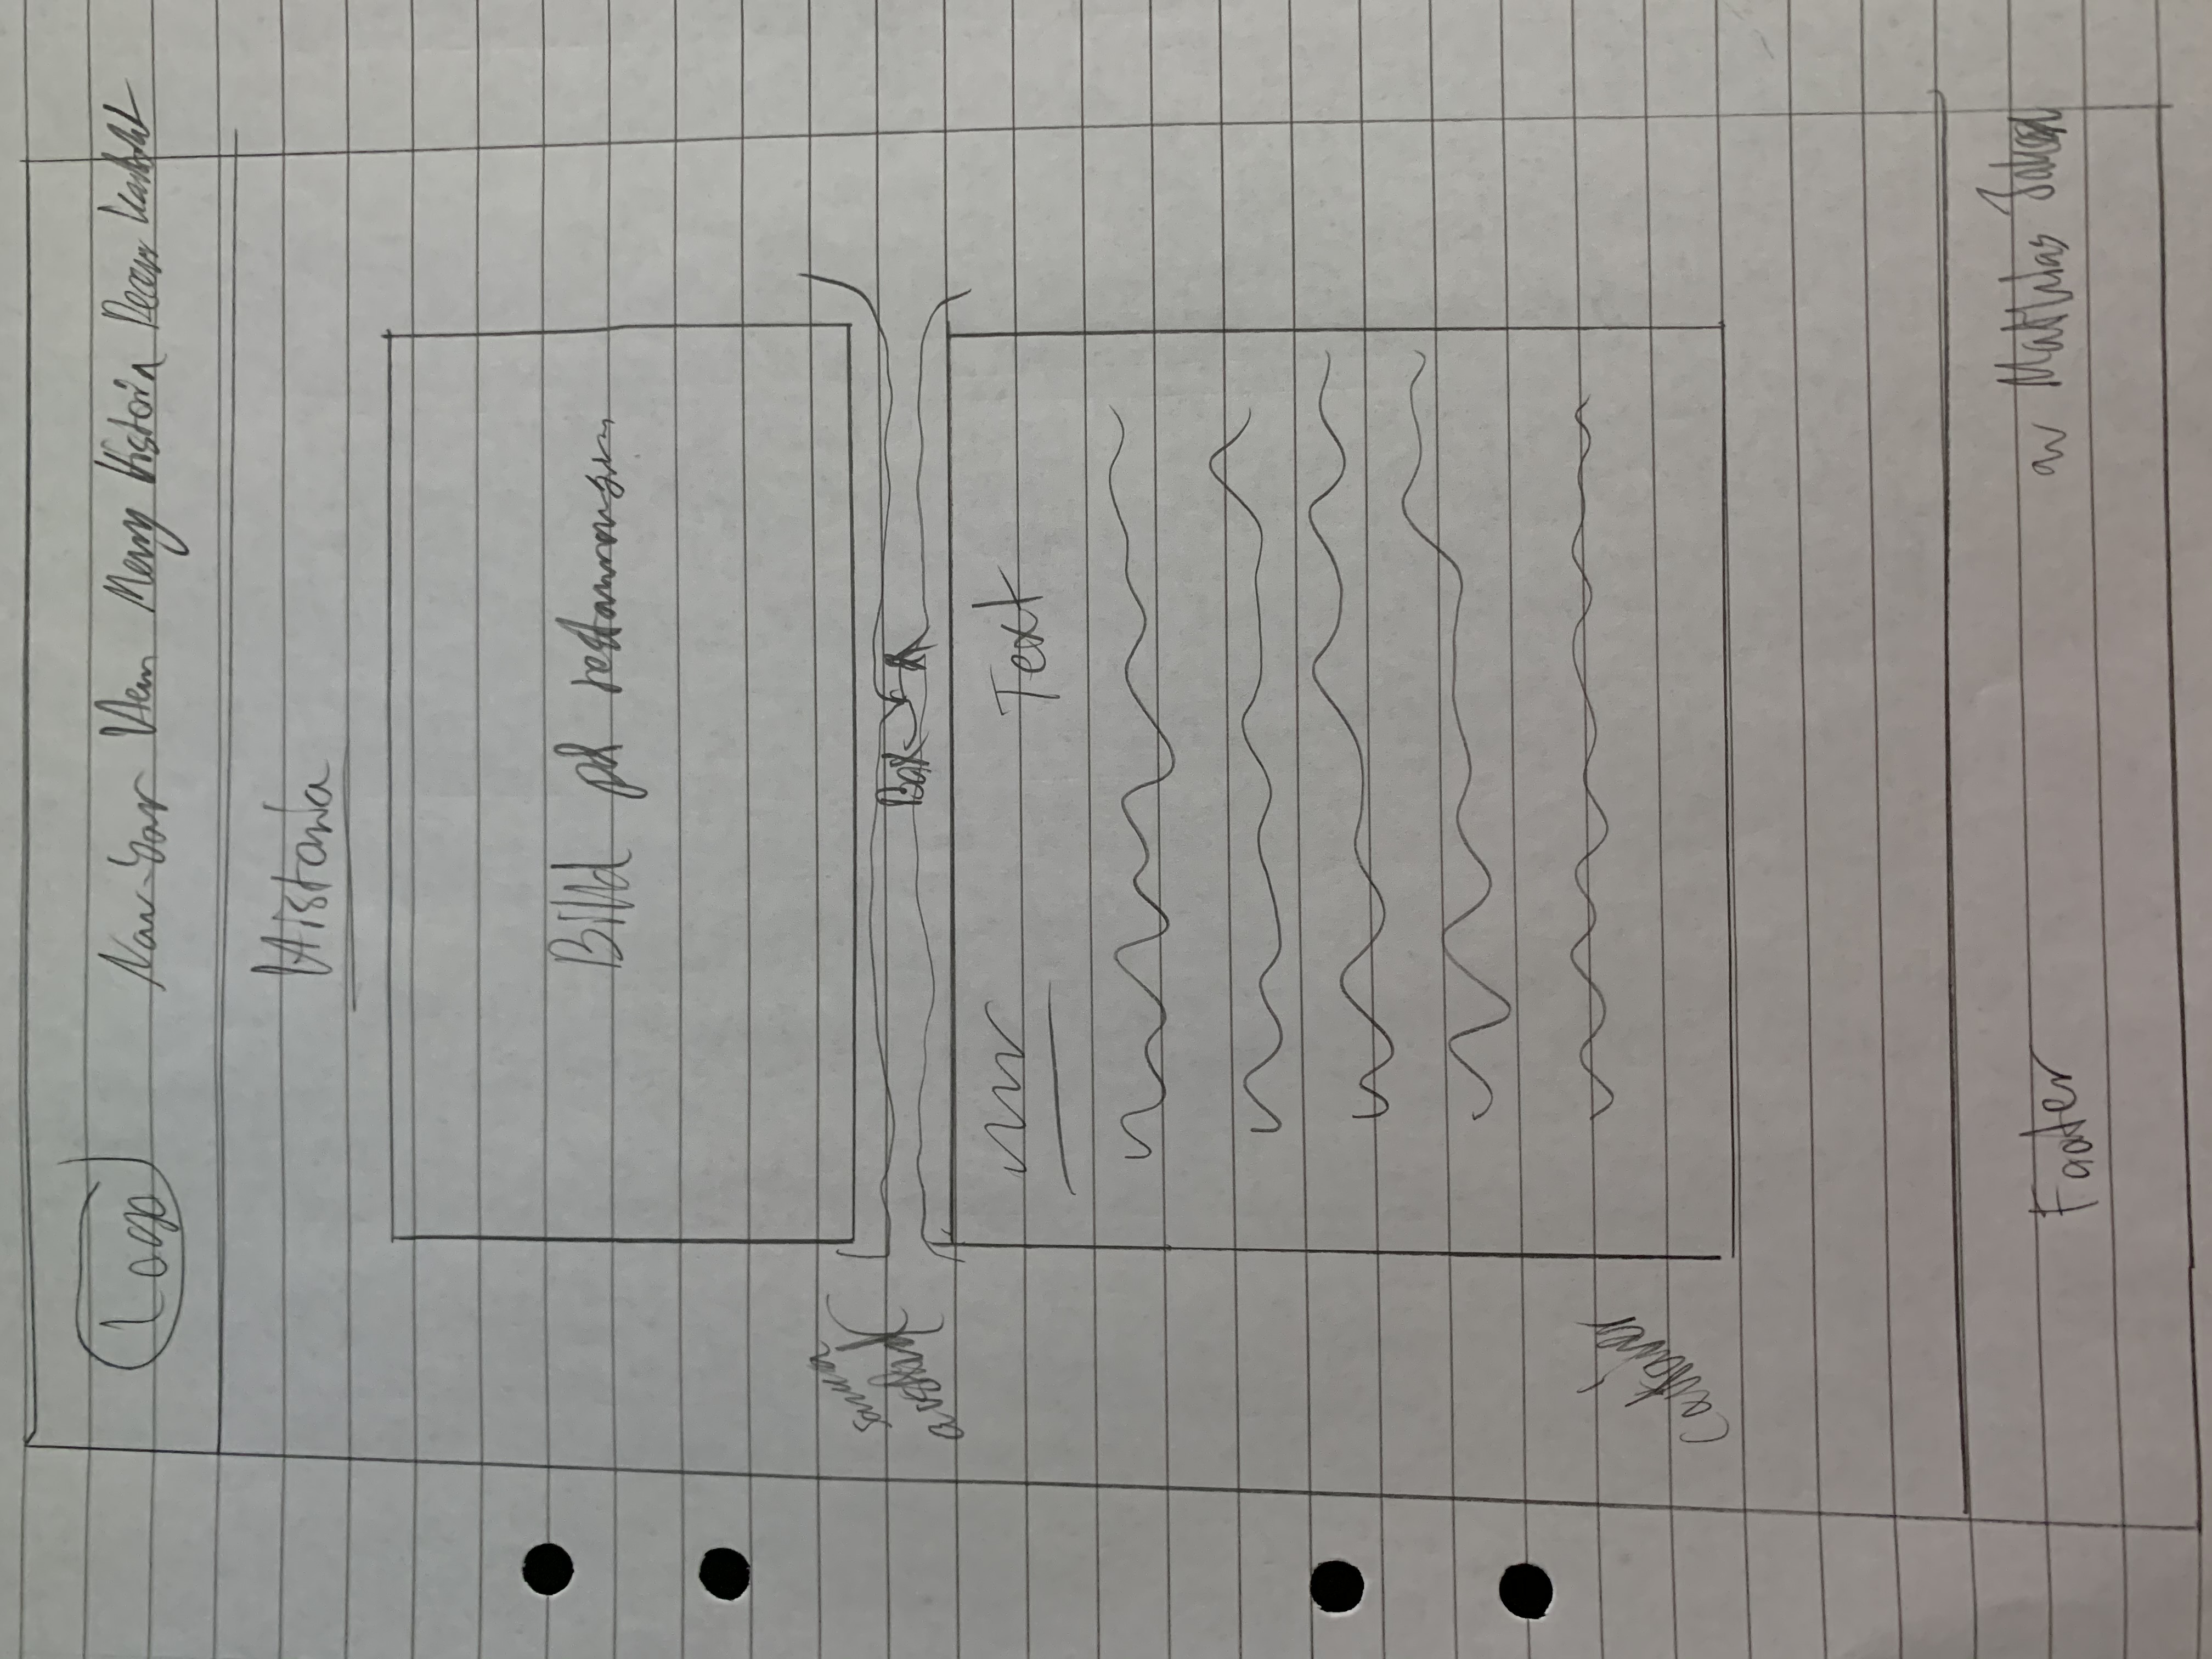 Logo Nav-bar Hem Meny Historia Recen Kontakt
Historia
Bild på restaurangen
Sama
avstånd
Box
Text
Container
Footer av Mathias